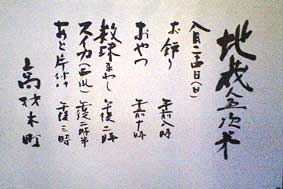 地蔵盆次第
八月二四日(日)
お飾り 午前八時
おやつ 午前十時
数珠まわし 午後二時
スイカ(西瓜) 午後二時半
あと片付け 午後三時
高材木町